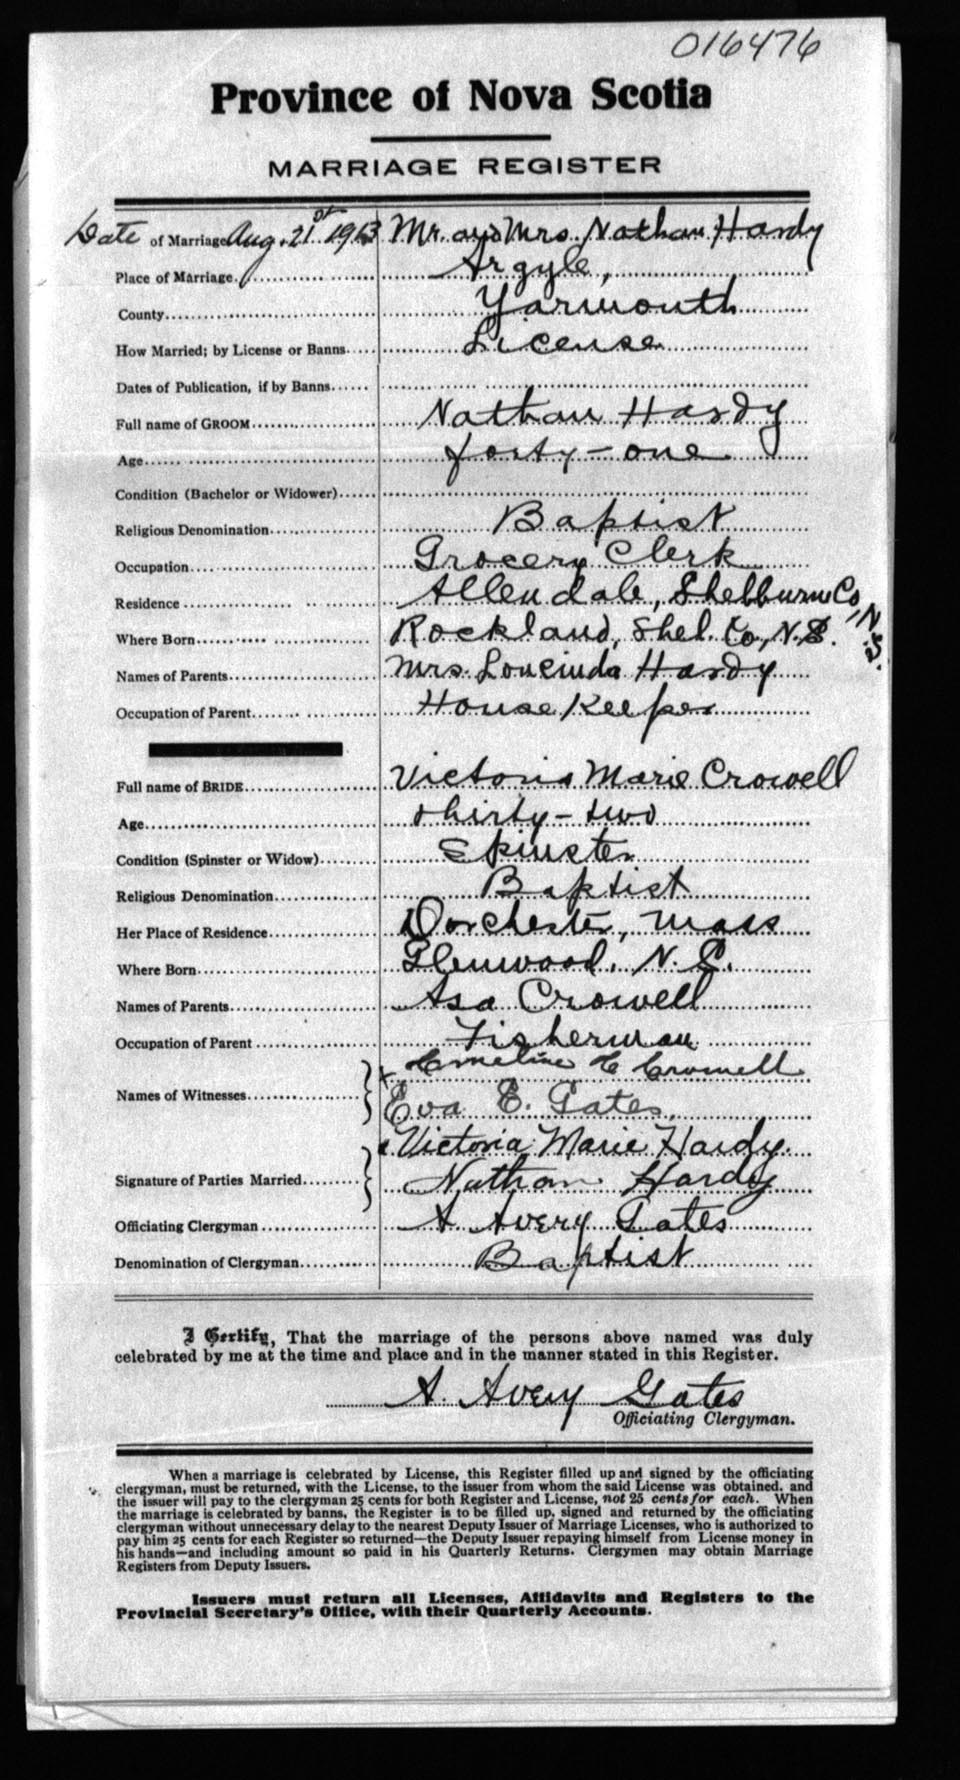 016476
Province of Nova Scotia
MARRIAGE REGISTER
Date of Marriage Aug. 21st 1913 Mr. and Mrs. Nathan Hardy
Place of Marriage. Argyle,
County Yarmouth
How Married; by License or Banns License
Dates of Publication, if by Banns
Full name of GROOM Nathan Hardy
Age forty-one
Condition (Bachelor or Widower)
Religious Denomination Baptist
Occupation Grocery Clerk
Residence Allendale, Shelburne Co, N.S.
Where Born Rockland, Shel. Co, N.S.
Names of Parents Mrs. Loucinda Hardy
Occupation of Parent House Keeper
Full name of BRIDE Victoria Marie Crowell
Age thirty-two
Condition (Spinster or Widow) Spinster
Religious Denomination Baptist
Her Place of Residence Dorchester, Mass
Where Born Glenwood, N.S.
Names of Parents Asa Crowell
Occupation of Parent Fisherman
Names of Witnesses x Emeline E Crowell
Eva E. Gates.
Signature of Parties Married Victoria Marie Hardy.
Nathan Hardy
Officiating Clergyman A Avery Gates
Denomination of Clergyman Baptist
I Certify, That the marriage of the persons above named was duly
celebrated by me at the time and place and in the manner stated in this Register.
A. Avery Gates
Officiating Clergyman.
When a marriage is celebrated by License, this Register filled up and signed by the officiating
clergyman, must be returned, with the License, to the issuer from whom the said License was obtained, and
the issuer will pay to the clergyman 25 cents for both Register and License, not 25 cents for each. When
the marriage is celebrated by banns, the Register is to be filled up, signed and returned by the officiating
clergyman without unnecessary delay to the nearest Deputy Issuer of Marriage Licenses, who is authorized to
pay him 25 cents for each Register so returned—the Deputy Issuer repaying himself from License money in
his hands—and including amount so paid in his Quarterly Returns. Clergymen may obtain Marriage
Registers from Deputy Issuers.
Issuers must return all Licenses, Affidavits and Registers to the
Provincial Secretary's Office, with their Quarterly Accounts.